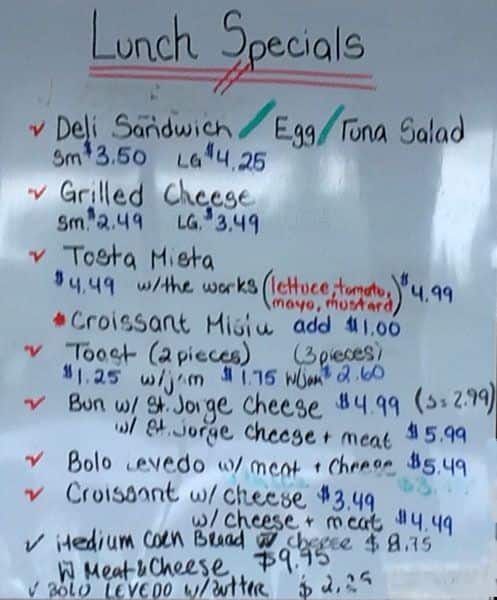 Lunch Specials
✓ Deli Sandwich / Egg / Tuna Salad
Sm $3.50 LG $4.25
✓ Grilled Cheese
Sm. $2.49 LG. $3.49
✓ Tosta Mista
$4.49 w/the works (lettuce, tomato, mayo, mustard) $4.99
• Croissant Misiu add $1.00
✓ Toast (2 pieces) (3 pieces)
$1.25 w/jam $1.75 w/Jam $2.60
✓ Bun w/ St. Jorge Cheese $4.99 (s=2.99)
w/ St. Jorge cheese + meat $5.99
✓ Bolo Levedo w/ meat + cheese $5.49
✓ Croissant w/ cheese $3.49
w/ cheese + meat $4.49
✓ Medium Corn Bread W cheese $8.75
W Meat & Cheese $9.95
✓ BOLO LEVEDO w/Butter $2.25